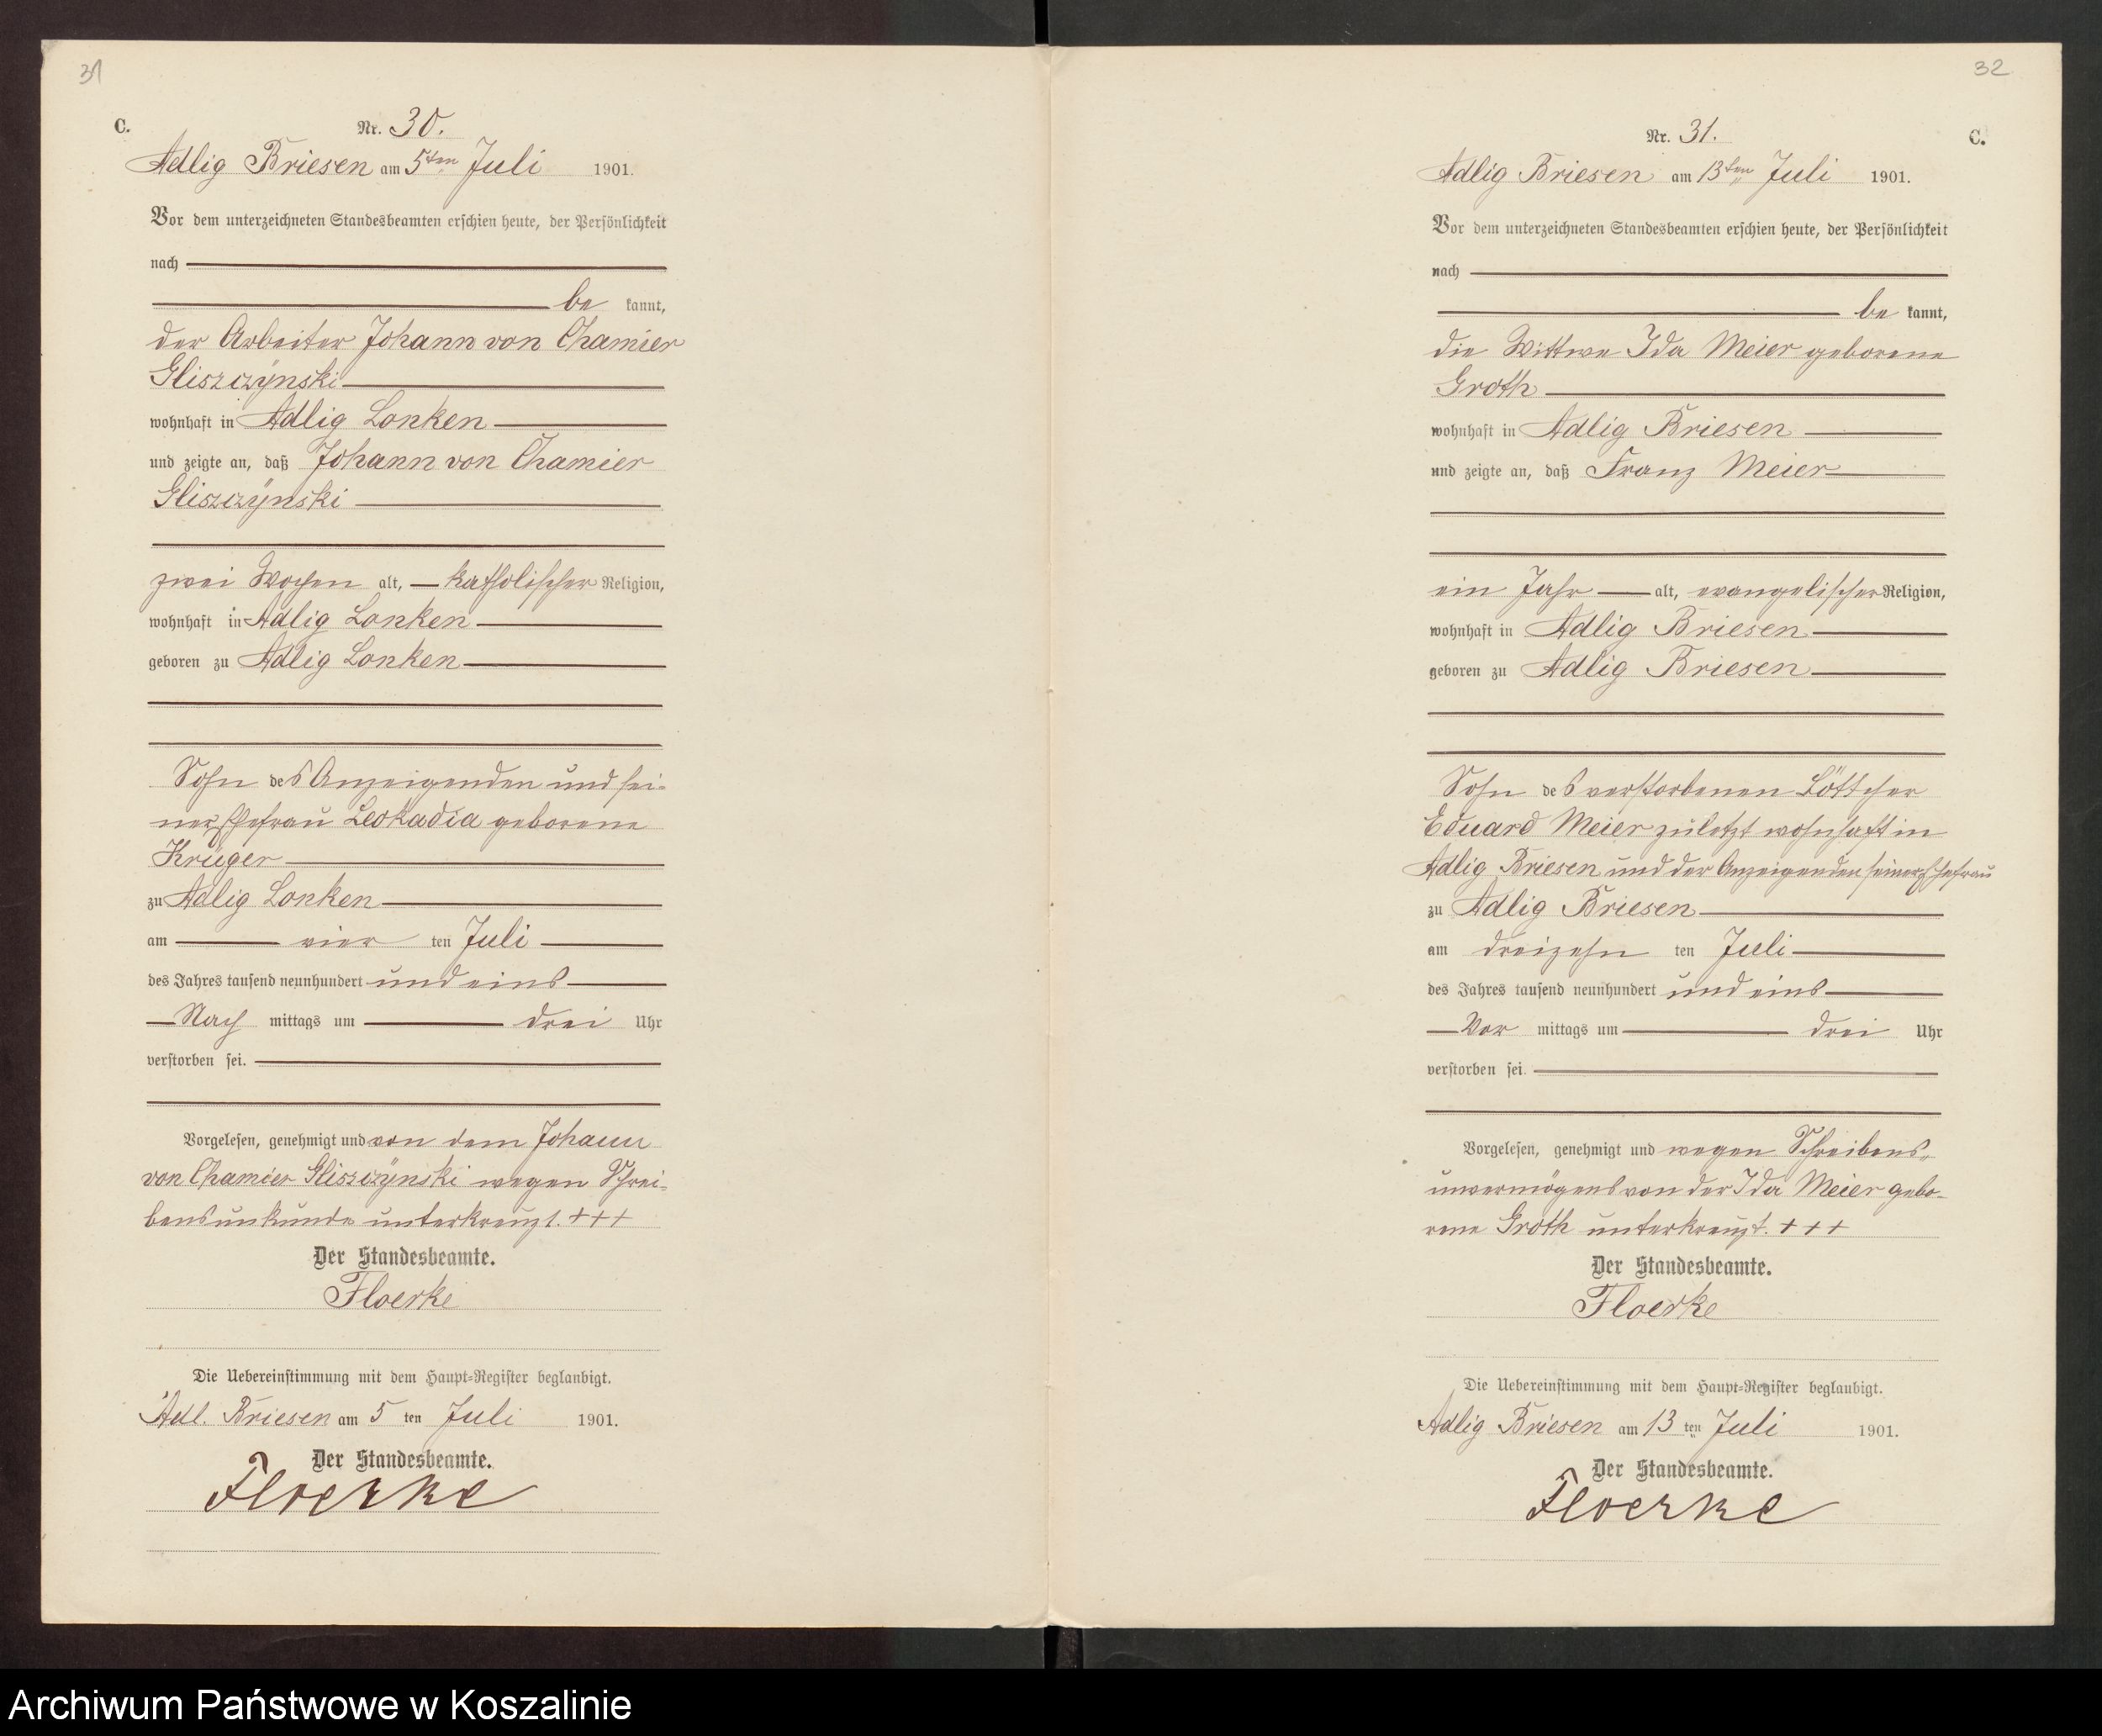 31
C.
Nr. 30.
Adlig Briesen am 5ten Juli 1901.
Vor dem unterzeichneten Standesbeamten erschien heute, der Persönlichkeit
nach
be kannt,
der Arbeiter Johann von Chamier
Gliszczÿnski
wohnhaft in Adlig Lonken
und zeigte an, daß Johann von Chamier
Gliszczÿnski
zwei Wochen alt, katholischer Religion,
wohnhaft in Adlig Lonken
geboren zu Adlig Lonken
Sohn des Anzeigenden und sei-
ner Ehefrau Leokadia geborene
Krüger
zu Adlig Lonken
am vier ten Juli
des Jahres tausend neunhundert und eins
Nach mittags um drei Uhr
verstorben sei.
Vorgelesen, genehmigt und von dem Johann
von Chamier Gliszczÿnski wegen Schrei-
bensunkunde unterkreuzt. +++
Der Standesbeamte.
Floerke
Die Uebereinstimmung mit dem Haupt-Register beglaubigt.
Adl. Briesen am 5 ten Juli 1901.
Der Standesbeamte.
Floerke
32
Nr. 31.
C.
Adlig Briesen am 13ten Juli 1901.
Vor dem unterzeichneten Standesbeamten erschien heute, der Persönlichkeit
nach
be kannt,
die Wittwe Ida Meier geborene
Groth
wohnhaft in Adlig Briesen
und zeigte an, daß Franz Meier
ein Jahr alt, evangelischer Religion,
wohnhaft in Adlig Briesen
geboren zu Adlig Briesen
Sohn des verstorbenen Böttcher
Eduard Meier zuletzt wohnhaft in
Adlig Briesen und der Anzeigenden seiner Ehefrau
zu Adlig Briesen
am dreizehn ten Juli
des Jahres tausend neunhundert und eins
Vor mittags um drei Uhr
verstorben sei.
Vorgelesen, genehmigt und wegen Schreibens-
unvermögens von der Ida Meier gebo-
rene Groth unterkreuzt. +++
Der Standesbeamte.
Floerke
Die Uebereinstimmung mit dem Haupt-Register beglaubigt.
Adlig Briesen am 13 ten Juli 1901.
Der Standesbeamte.
Floerke
Archiwum Państwowe w Koszalinie